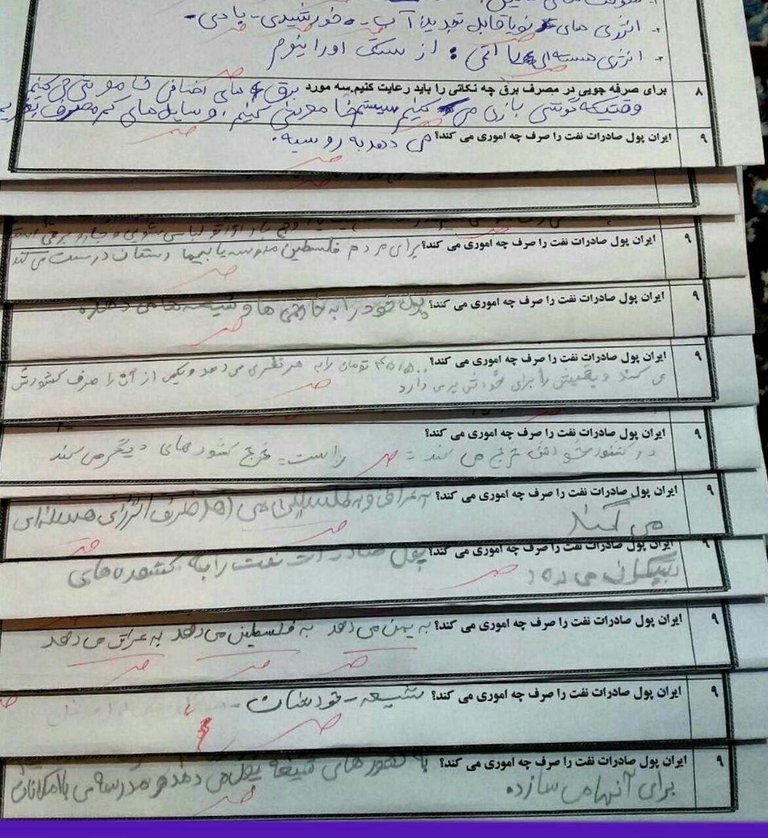 ۲. انرژی های نو یا قابل تجدید: آب - خورشیدی - بادی.
۳. انرژی هسته ای یا اتمی: از سنگ اورانیوم
۸ برای صرفه جویی در مصرف برق چه نکاتی را باید رعایت کنیم.سه مورد برق های اضافی خاموش می کنیم
وقتیکه گوشی بازی می کنیم سیستم خاموش کنیم. وسایل های کم مصرف بخریم
۹ ایران پول صادرات نفت را صرف چه اموری می کند؟ می دهد به روسیه.
۹ ایران پول صادرات نفت را صرف چه اموری می کند؟ برای مردم فلسطین مدرسه یا بیمارستان درست می کند
۹ ایران پول صادرات نفت را صرف چه اموری می کند؟ پول خود را به خارجی ها و شیعه ها می دهد
۹ ایران پول صادرات نفت را صرف چه اموری می کند؟ ۴۵/۵۰۰ تومان را به هر نفری می دهد و یکمی از آن را صرف کشورش
می کند و بقیش را برای خودش برمی دارد
۹ ایران پول صادرات نفت را صرف چه اموری می کند؟
در کشور خودش خرج می کند: راست - خرج کشورهای دیگر می کند
۹ ایران پول صادرات نفت را صرف چه اموری می کند؟ به عراق و به فلسطین می دهد صرف انرژی هسته ای
می کند
۹ ایران پول صادرات نفت را صرف چه اموری می کند؟ پول صادرات نفت را به کشورهای
بیگانه می دهد
۹ ایران پول صادرات نفت را صرف چه اموری می کند؟ به یمن می دهد به فلسطین می دهد به عراق می دهد
۹ ایران پول صادرات نفت را صرف چه اموری می کند؟ شیعه - خودشان -
۹ ایران پول صادرات نفت را صرف چه اموری می کند؟ به کشورهای شیعه پول می دهد و مدرسه ی با امکانات
برای آنها می سازد